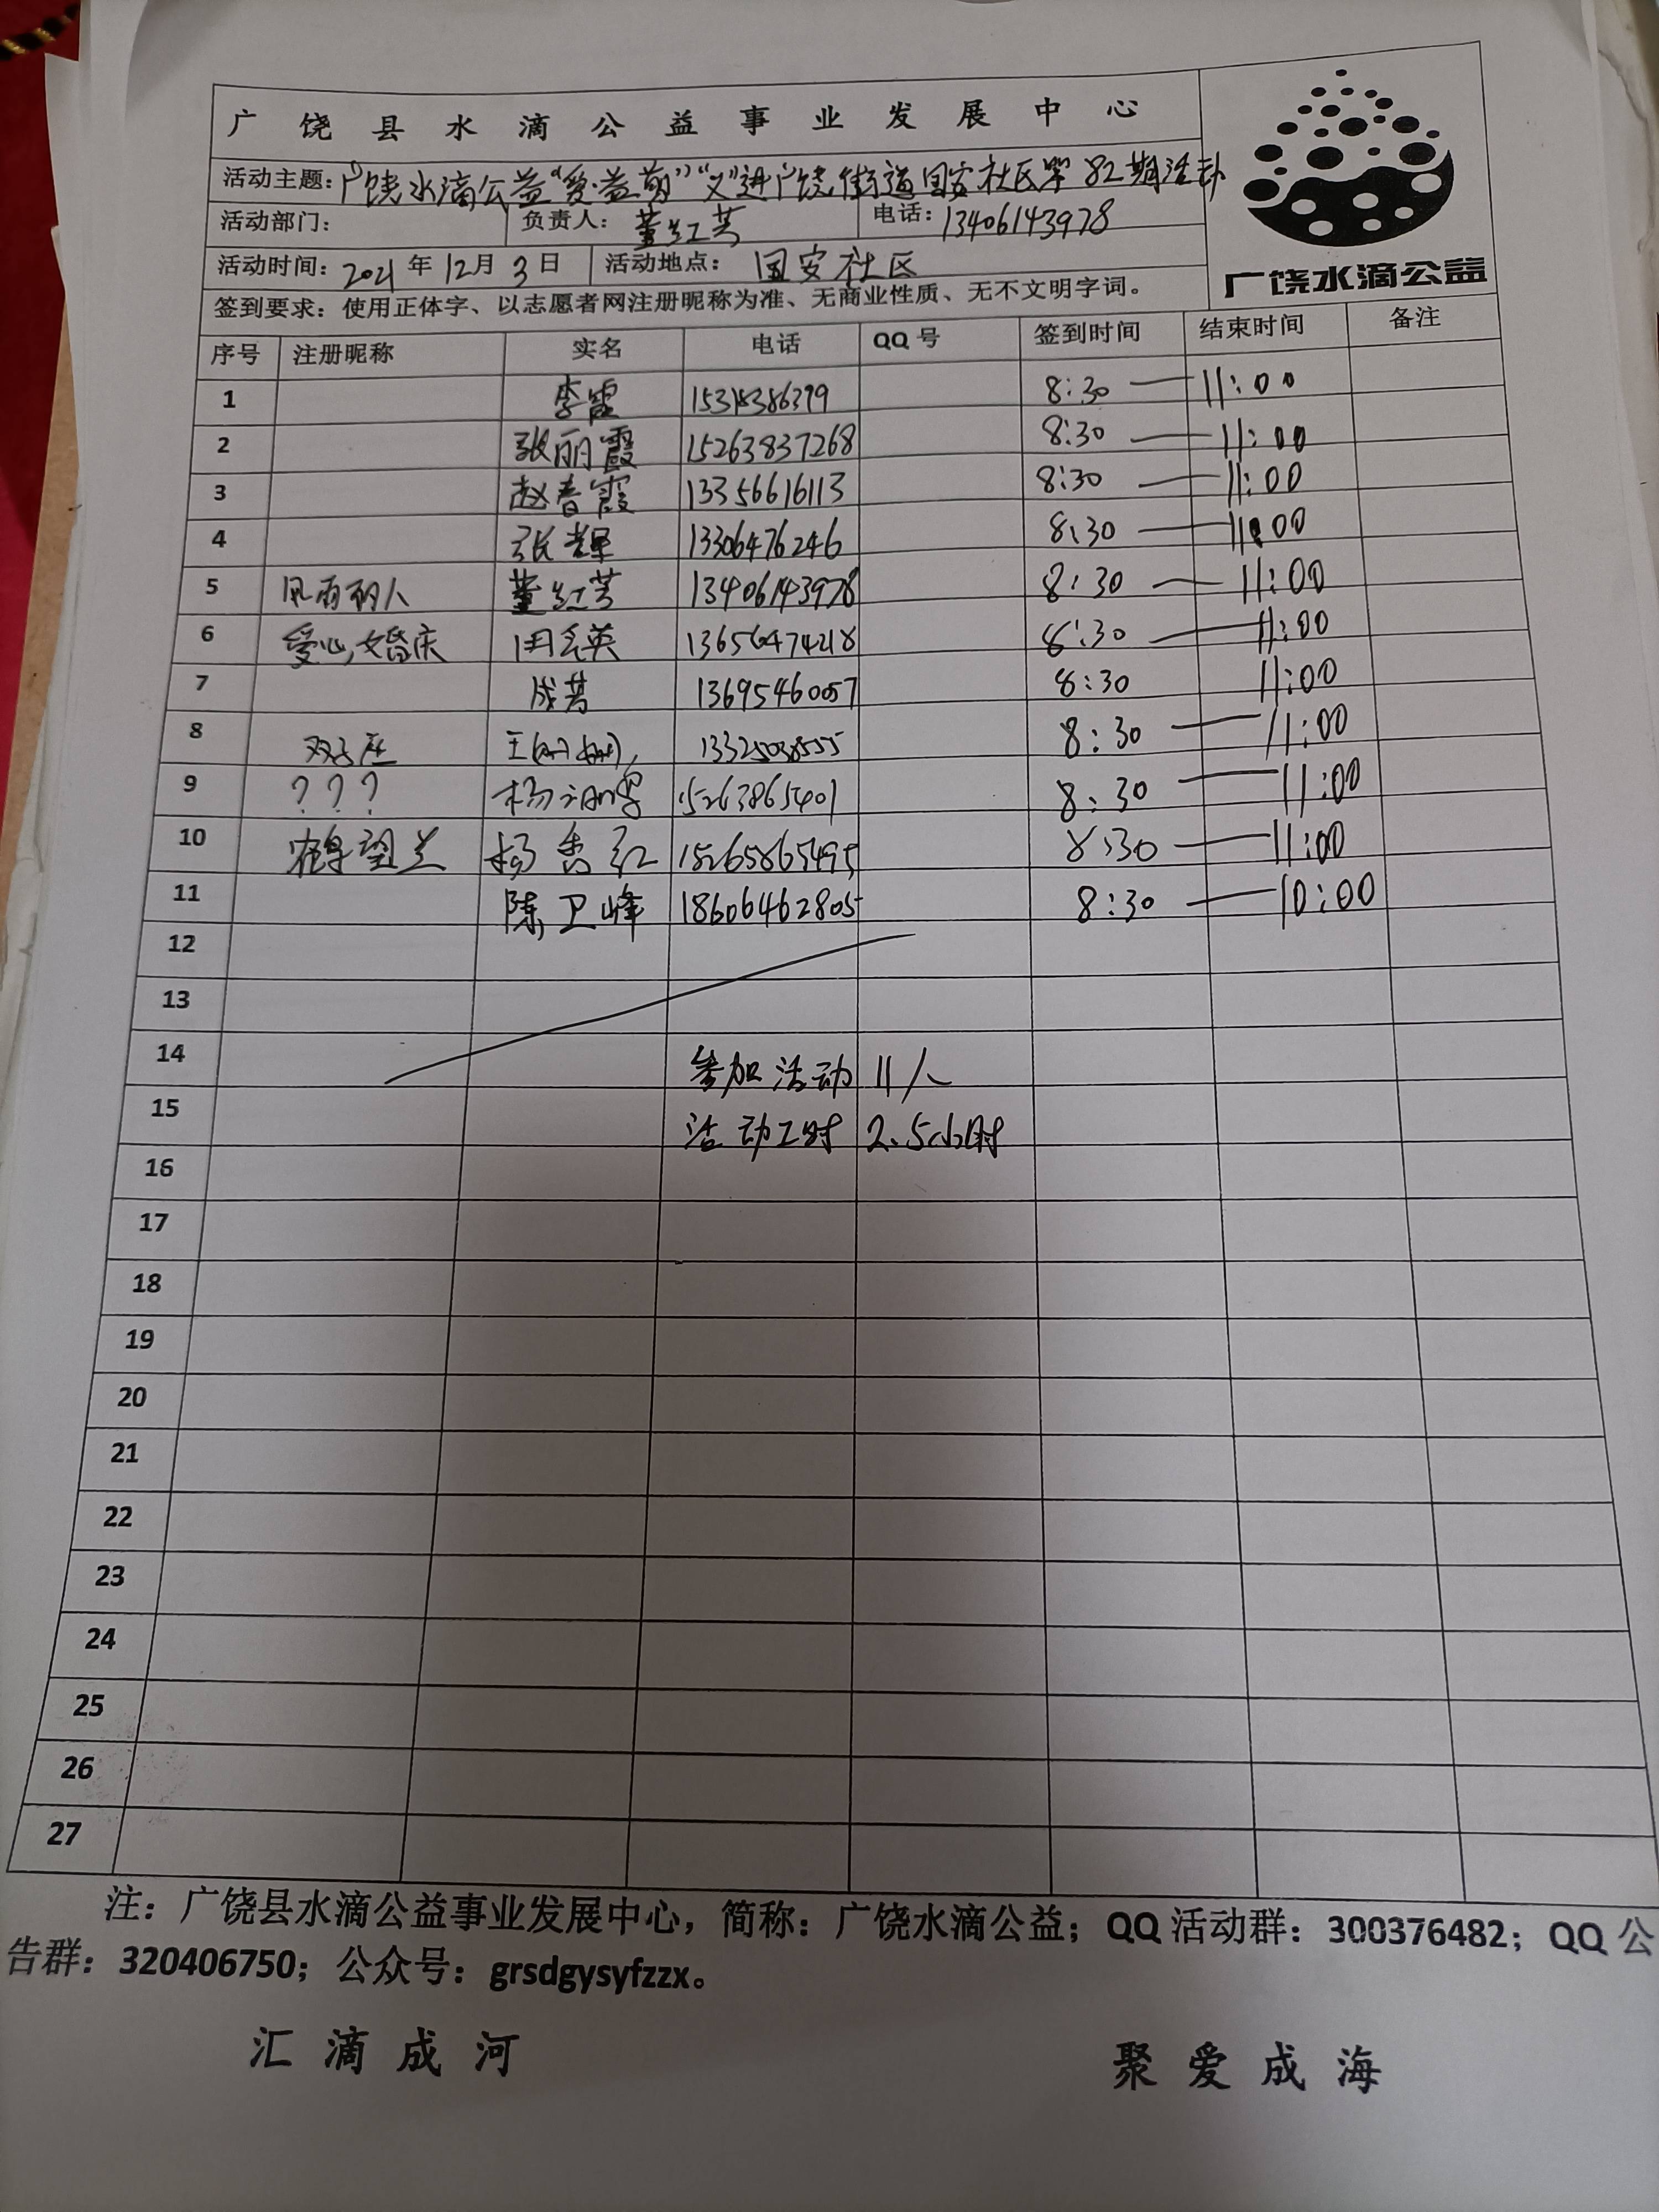 广饶县水滴公益事业发展中心
活动主题：广饶水滴公益“爱·益萌”“义”进广饶街道国安社区第82期活动
活动部门： 负责人：董红芳 电话：13406143978
活动时间：2021年12月3日 活动地点：国安社区
广饶水滴公益
签到要求：使用正体字、以志愿者网注册昵称为准、无商业性质、无不文明字词。
序号 注册昵称 实名 电话 QQ号 签到时间 结束时间 备注
1 李霞 8:30 — 11:00
2 张丽霞 15263837268 8:30 — 11:00
3 赵春霞 13356616113 8:30 — 11:00
4 张辉 13306476246 8:30 — 11:00
5 风雨丽人 董红芳 13406143978 8:30 — 11:00
6 爱心婚庆 13656474218 8:30 — 11:00
7 成芳 13695460057 8:30 11:00
8 双子座 王姗姗 8:30 — 11:00
9 ??? 15263865401 8:30 — 11:00
10 鹤望兰 杨香红 15265865495 8:30 — 11:00
11 陈卫峰 18606462805 8:30 — 10:00
12
13
14 参加活动 11人
15 活动工时 2.5小时
16
17
18
19
20
21
22
23
24
25
26
27
注：广饶县水滴公益事业发展中心，简称：广饶水滴公益；QQ活动群：300376482；QQ公
告群：320406750；公众号：grsdgysyfzzx。
汇滴成河 聚爱成海